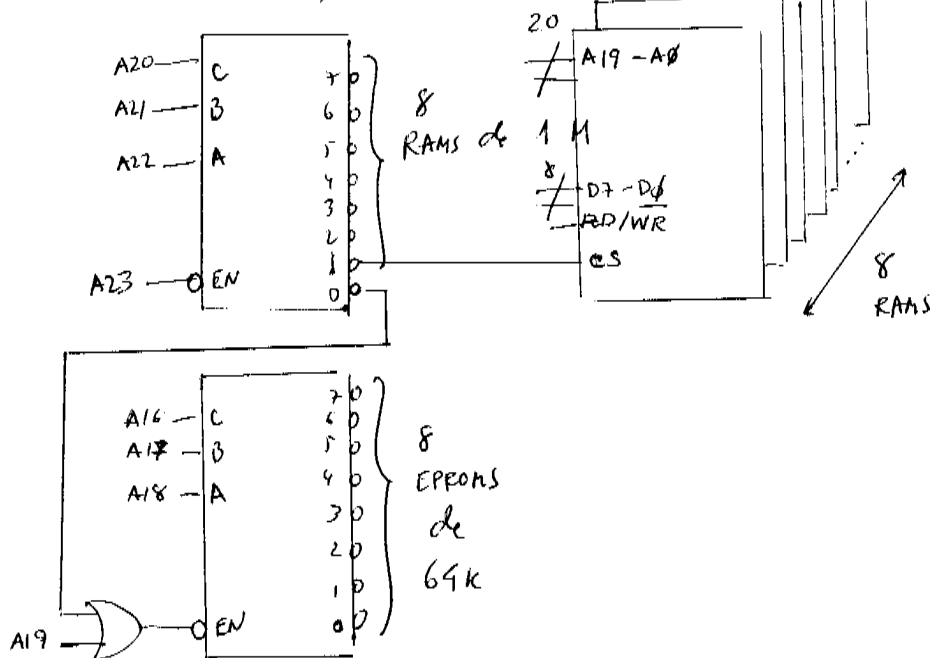 20
A20
A21
A22
A23
C
B
A
EN
7
6
5
4
3
2
1
0
8
RAMS de 1 M
A19 - A0
8
D7 - D0
RD/WR
CS
8
RAMS
A16
A17
A18
A19
C
B
A
EN
7
6
5
4
3
2
1
0
8
EPROMS
de
64K